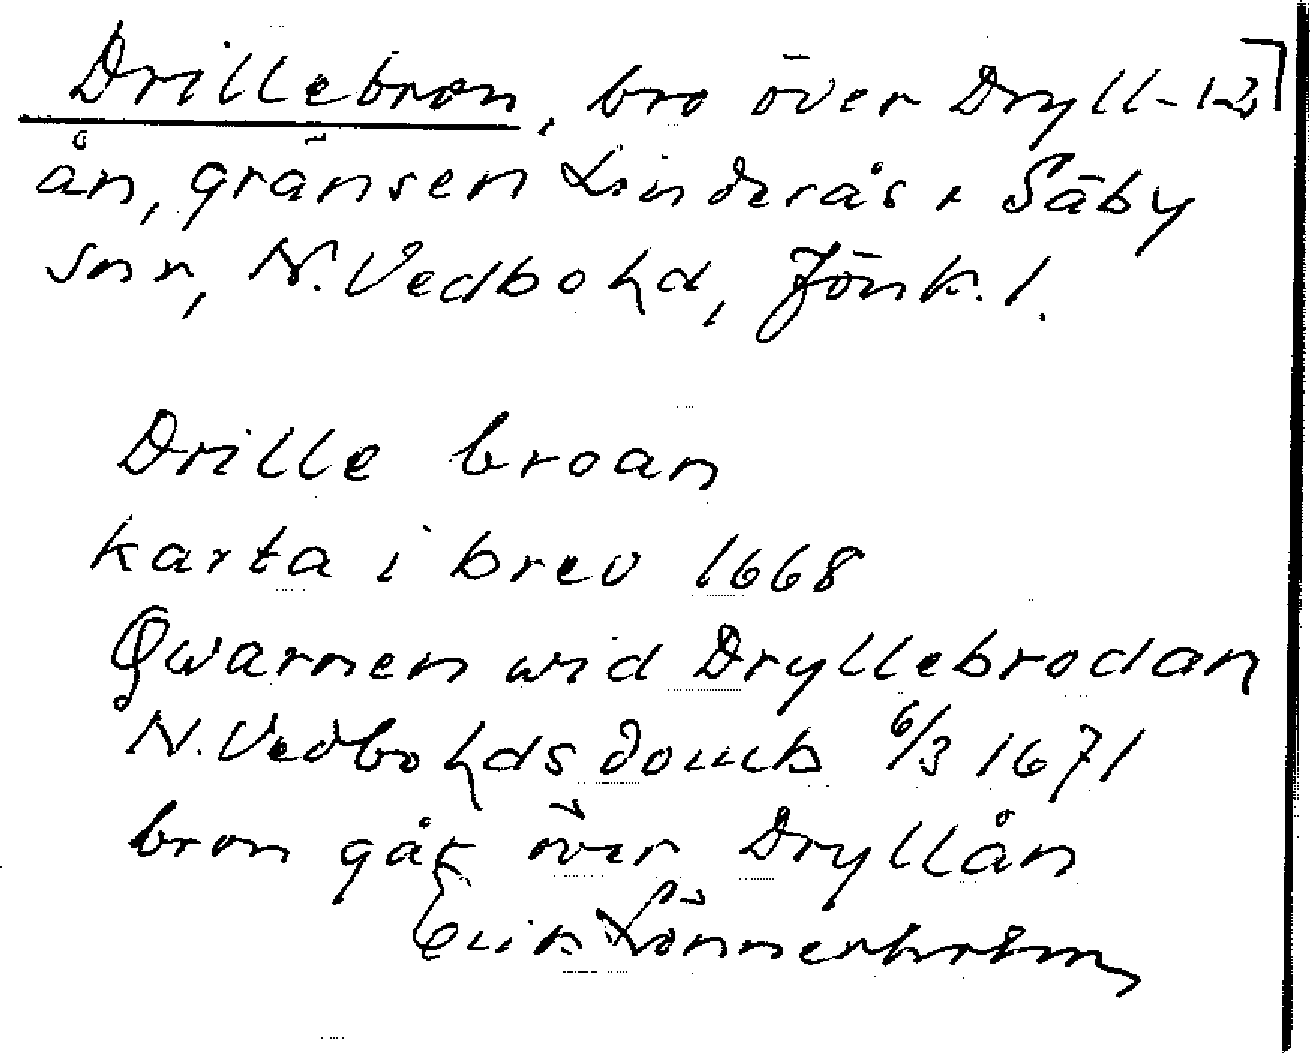 Drillebron, bro över Dryll-
ån, gränsen Linderås & Säby
snr, N. Vedbo hd, Jönk. l.
Drille broan
karta i brev 1668
Qwarnen wid Dryllebrodan
N. Vedbo hds domb 6/3 1671
bron går över Dryllån
Erik Lönnerholm